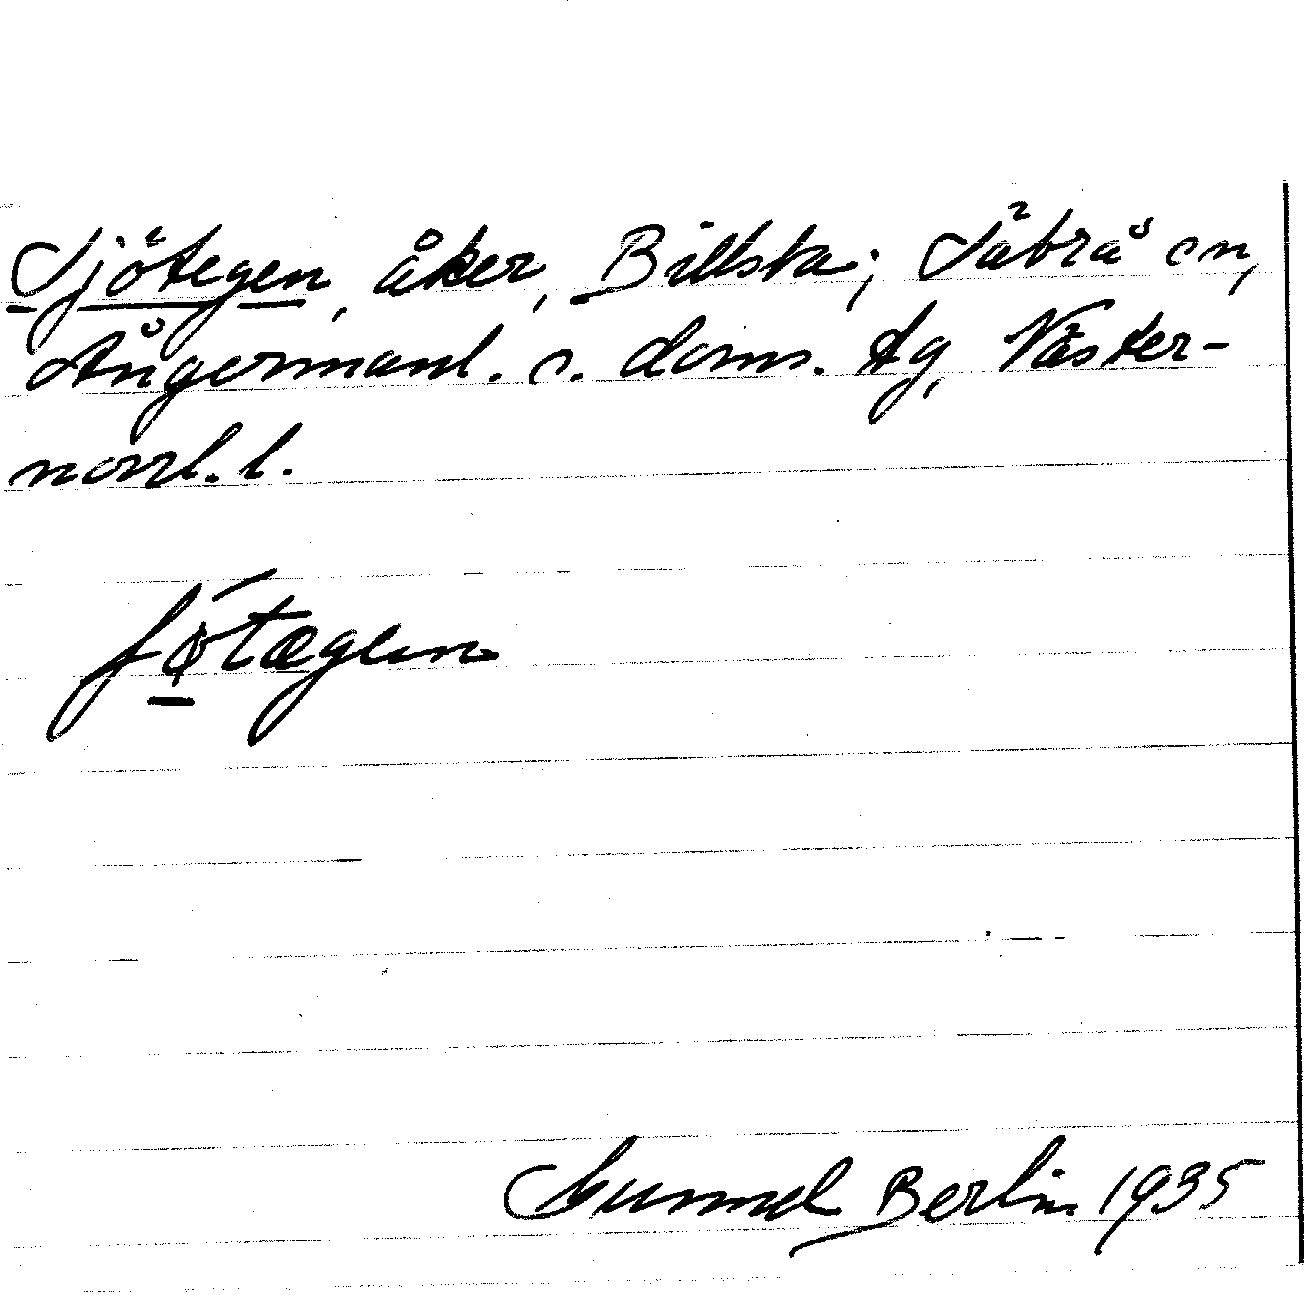 Sjötegen, åker, Billsta; Säbrå sn,
Ångermanl. s. doms. tg, Väster-
norrl. l.
ʃø̀tægen
Gunnel Berlin 1935